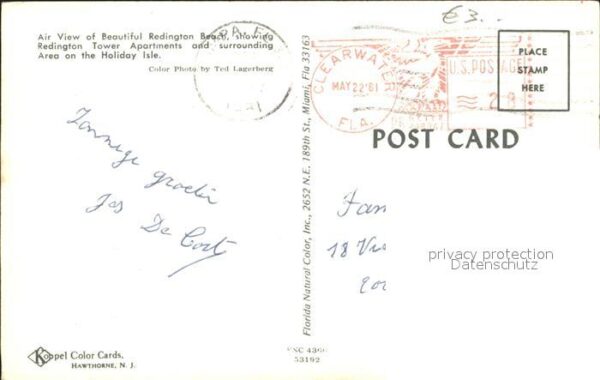 Air View of Beautiful Redington Beach, showing
Redington Tower Apartments and surrounding
Area on the Holiday Isle.
Color Photo by Ted Lagerberg
€3...
CLEARWATER
MAY 22'61
FLA.
U.S. POSTAGE
PLACE
STAMP
HERE
POST CARD
Zonnige groeten
Jos De Cort
Florida Natural Color, Inc., 2652 N.E. 189th St., Miami, Fla 33163
Fam
18
privacy protection
Datenschutz
Koppel Color Cards,
HAWTHORNE, N. J.
53192